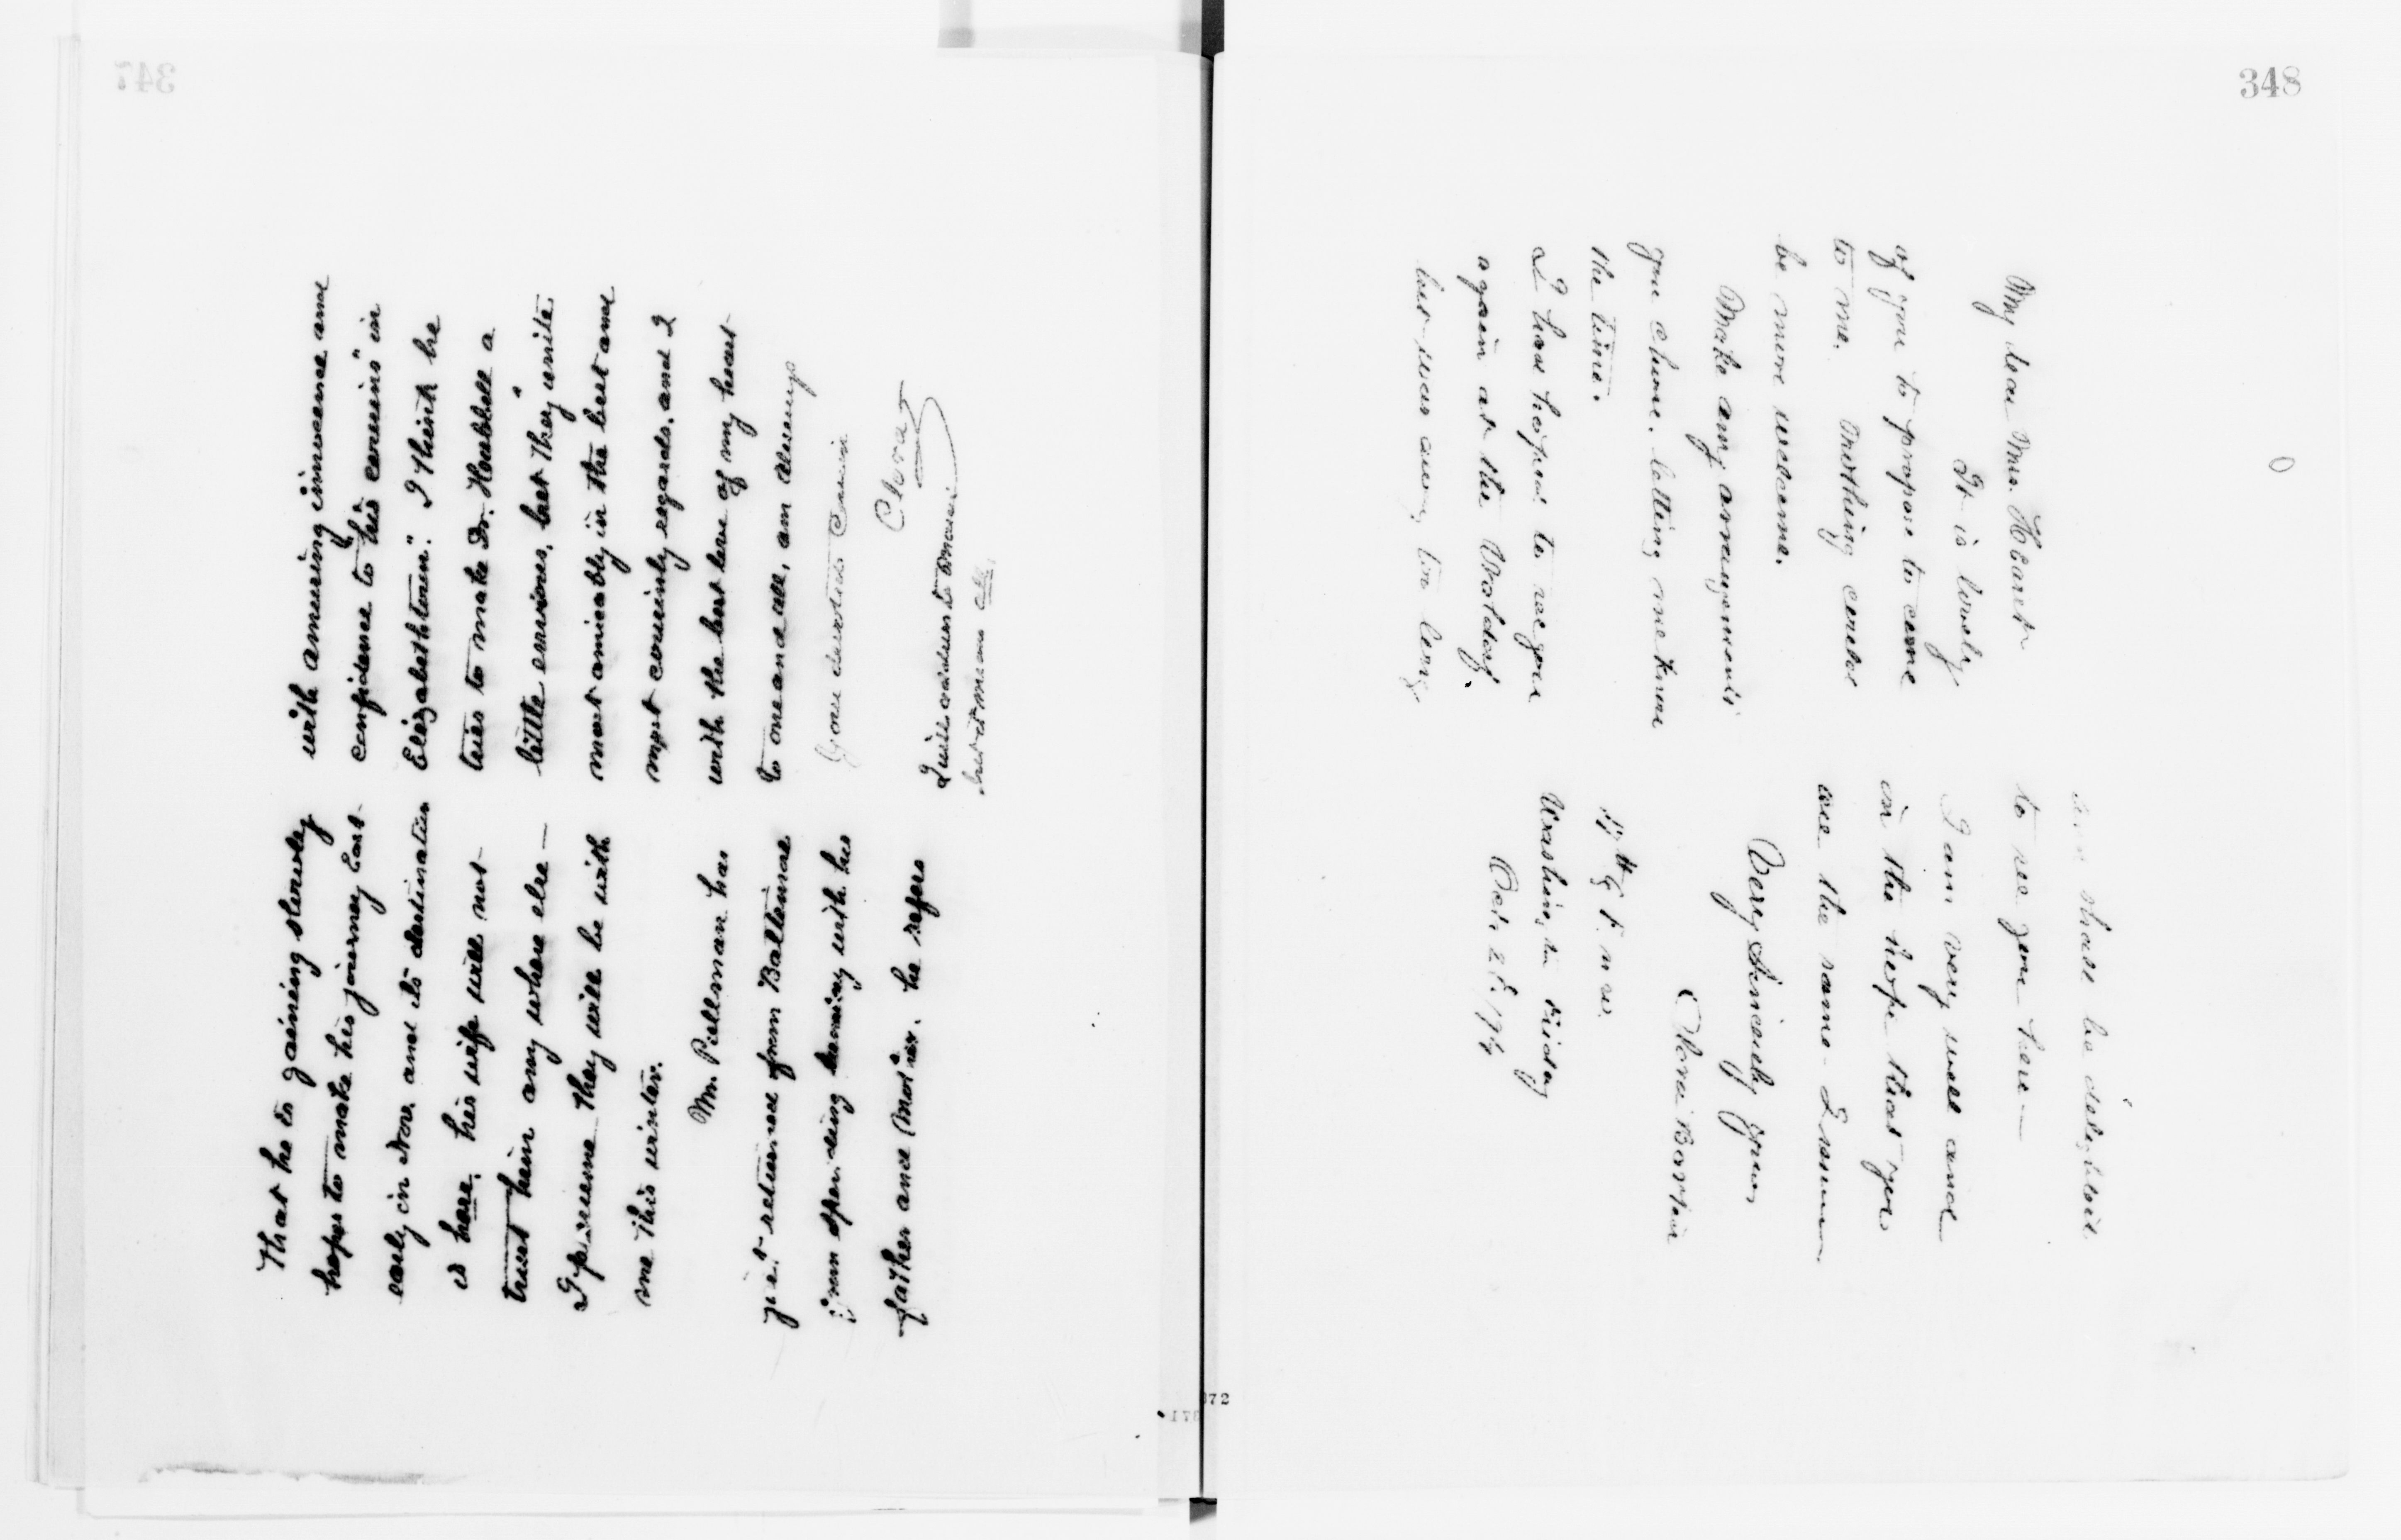 347
That he is gaining slowly
hopes to make his journey East
early in Nov. and its destination
is here, his wife will not
trust him any where else —
I presume they will be with
me this winter.
Mr. Pullman has
just returned from Baltimore
from spending having with his
father and mother. he refers
with amusing innocence and
confidence to "his cousins" in
Elizabethtown." I think he
tries to make Dr. Hubbell a
little envious, but they unite
most amicably in the best and
most cousinly regards. and I
with the best love of my heart
to one and all, am always
Your devoted Cousin
Clara
I will address to
but it means all.
348
My dear Mrs. Heart
It is lovely
of you to propose to come
to me. Nothing could
be more welcome.
Make any arrangements
you choose, letting me know
the time.
I had hoped to see you
again at the Waldorf.
but was away too long
shall be delighted
to see you here —
I am very well and
in the hope that you
are the same - I remain
Very Sincerely Yours
Clara Barton
17th & F. n w.
Washington Friday
Oct 25/94
372